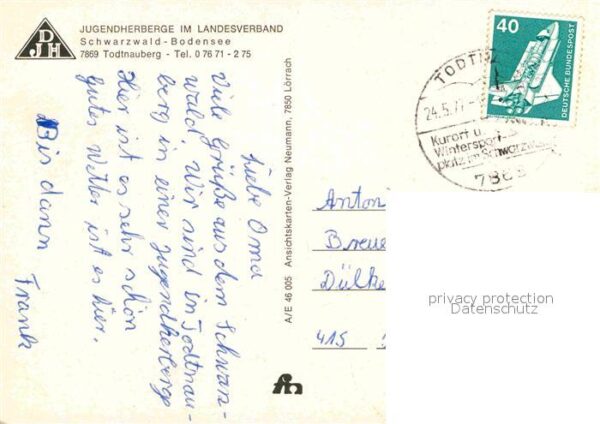 DJH
JUGENDHERBERGE IM LANDESVERBAND
Schwarzwald-Bodensee
7869 Todtnauberg - Tel. 0 76 71 - 2 75
Liebe Oma
Viele Grüße aus dem Schwarz-
wald. Wir sind in Todtnau-
berg in einer Jugendherberge
Hier ist es sehr schön
gutes Wetter ist es hier.
Bis dann
Frank
A/E 46 005 Ansichtskarten-Verlag Neumann, 7850 Lörrach
40
DEUTSCHE BUNDESPOST
TODTN
24.5.77
Kurort u.
Wintersport-
platz im Schwarzwald
7868
Anton
Breue
Dülke
415
privacy protection
Datenschutz